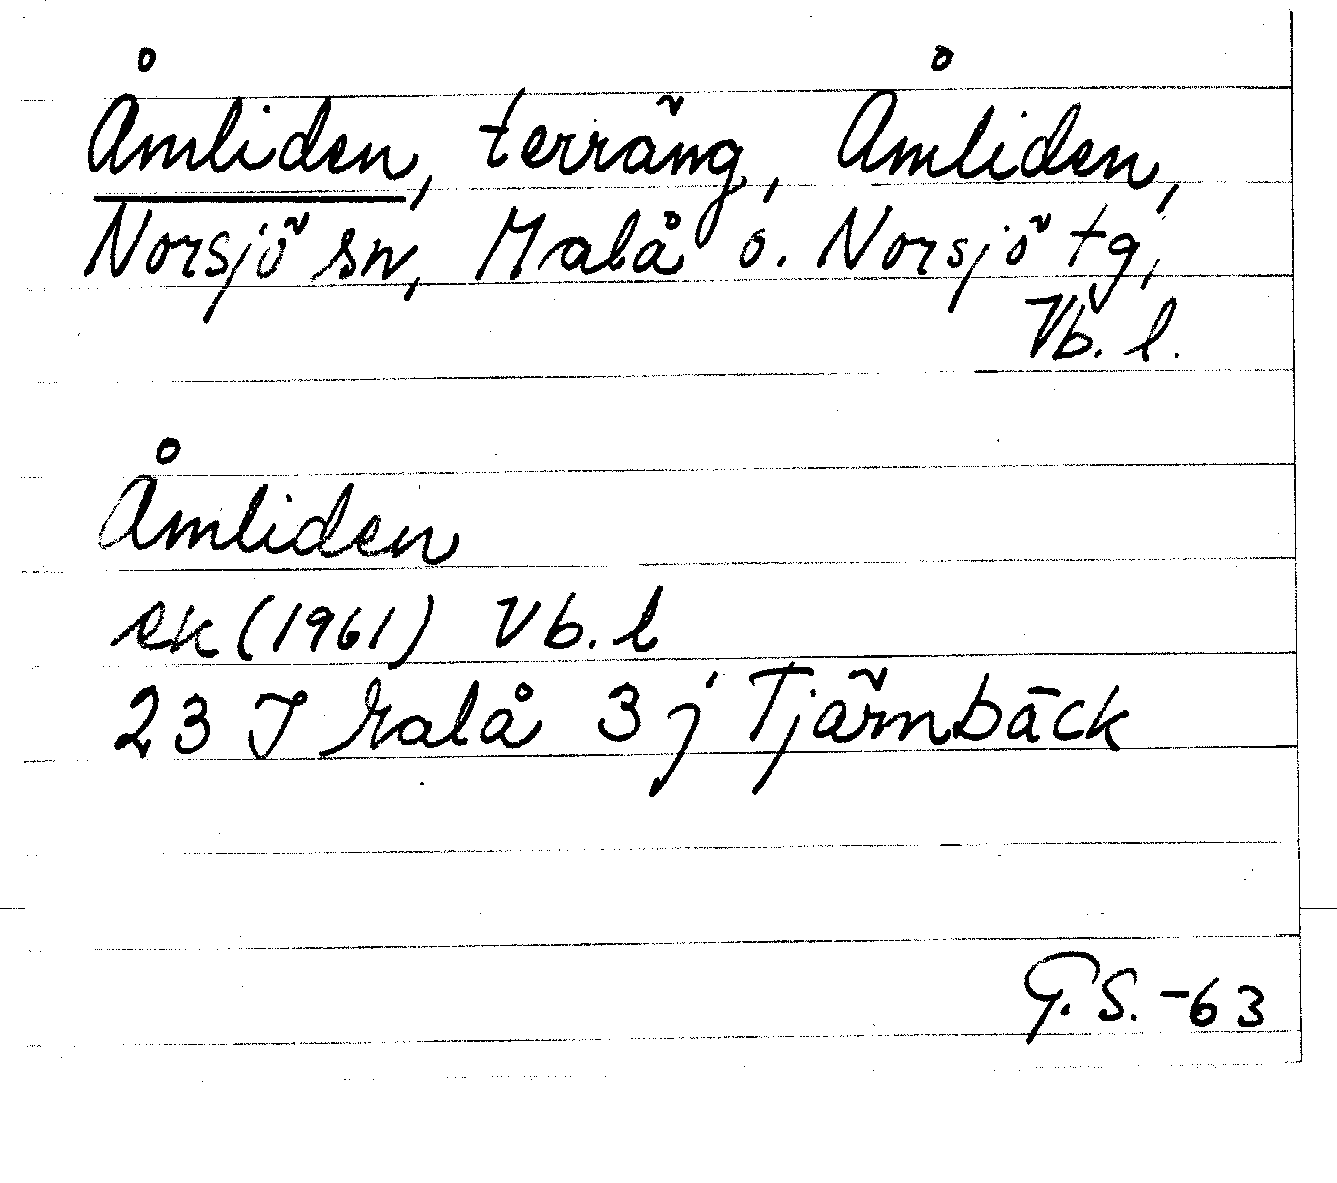 Åmliden, terräng, Åmliden,
Norsjö sn, Malå o. Norsjö tg,
Vb. l.
Åmliden
ek (1961) Vb. l
23 J Malå 3 j Tjärnbäck
G. S. -63